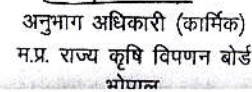 अनुभाग अधिकारी (कार्मिक)
म.प्र. राज्य कृषि विपणन बोर्ड
भोपाल